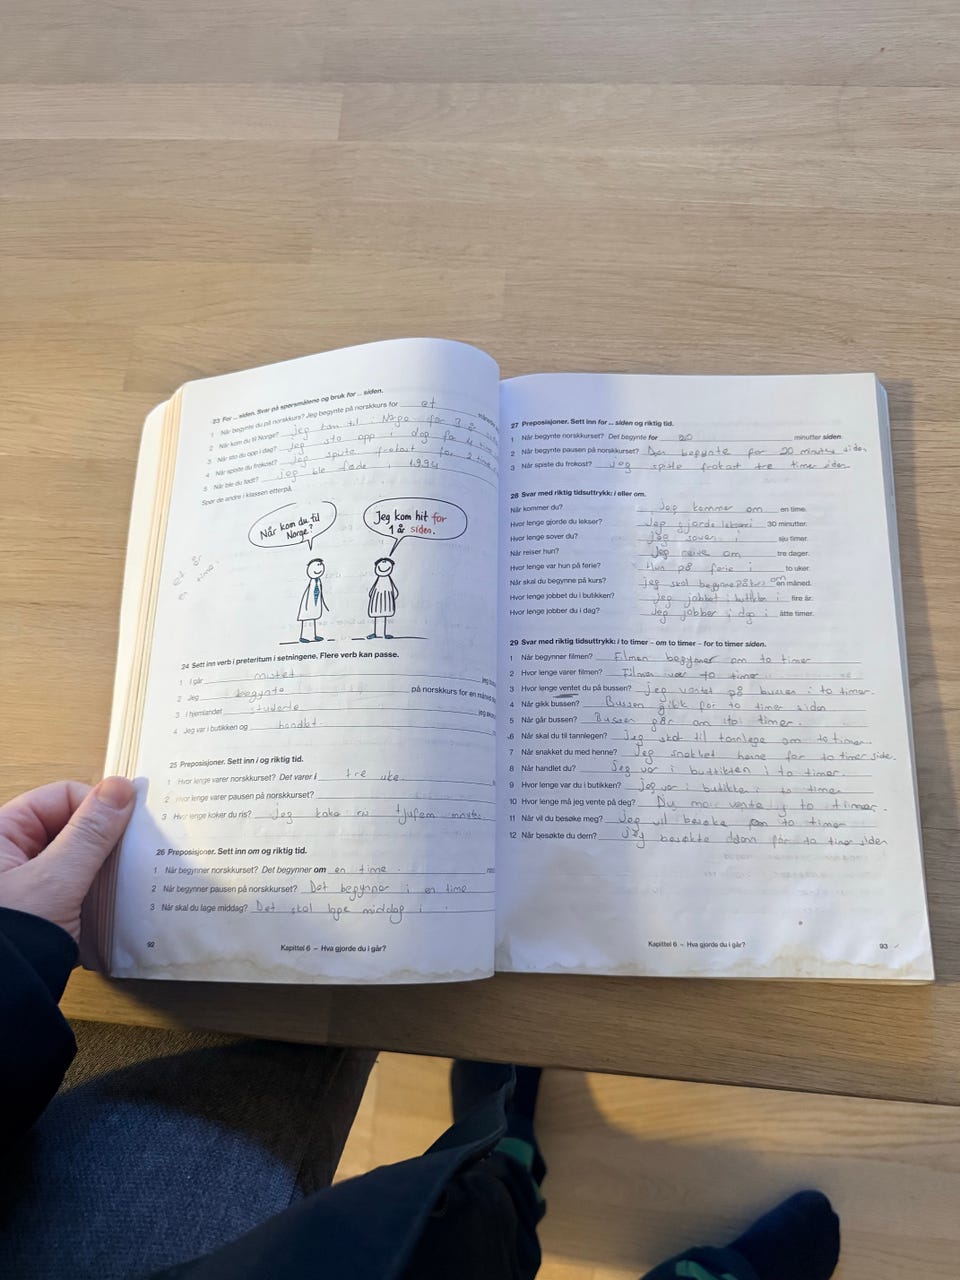 23 For ... siden. Svar på spørsmålene og bruk for ... siden.
1 Når begynte du på norskkurs? Jeg begynte på norskkurs for et måneder
2 Når kom du til Norge? Jeg kom til Norge for 3 år
3 Når sto du opp i dag? Jeg sto opp i dag for
4 Når spiste du frokost? Jeg spiste frokost for 2 time
5 Når ble du født? Jeg ble føde i 1994
Spør de andre i klassen etterpå.
Når kom du til
Norge?
Jeg kom hit for
1 år siden.
et år
en time
24 Sett inn verb i preteritum i setningene. Flere verb kan passe.
1 I går mistet jeg
2 Jeg begynte på norskkurs for en måned
3 I hjemlandet studerte jeg
4 Jeg var i butikken og handlet
25 Preposisjoner. Sett inn i og riktig tid.
1 Hvor lenge varer norskkurset? Det varer i tre uke
2 Hvor lenge varer pausen på norskkurset?
3 Hvor lenge koker du ris? Jeg koke ris i tjufem
26 Preposisjoner. Sett inn om og riktig tid.
1 Når begynner norskkurset? Det begynner om en time
2 Når begynner pausen på norskkurset? Det begynner i en time
3 Når skal du lage middag? Det skal lage middag i
92
Kapittel 6 – Hva gjorde du i går?
27 Preposisjoner. Sett inn for ... siden og riktig tid.
1 Når begynte norskkurset? Det begynte for 20 minutter siden.
2 Når begynte pausen på norskkurset? Den begynte for 20 minutter siden
3 Når spiste du frokost? Jeg spiste frokost tre timer siden
28 Svar med riktig tidsuttrykk: i eller om.
Når kommer du? Jeg kommer om en time.
Hvor lenge gjorde du lekser? Jeg gjorde lekser i 30 minutter.
Hvor lenge sover du? Jeg sover i sju timer.
Når reiser hun? Jeg reise om tre dager.
Hvor lenge var hun på ferie? Hun på ferie i to uker.
Når skal du begynne på kurs? Jeg skal begynne på kurs om en måned.
Hvor lenge jobbet du i butikken? Jeg jobbet i butikken i fire år.
Hvor lenge jobber du i dag? Jeg jobber i dag i åtte timer.
29 Svar med riktig tidsuttrykk: i to timer – om to timer – for to timer siden.
1 Når begynner filmen? Filmen begynner om to timer
2 Hvor lenge varer filmen? Filmen var to timer
3 Hvor lenge ventet du på bussen? Jeg ventet på bussen i to timer.
4 Når gikk bussen? Bussen gikk for to timer siden
5 Når går bussen? Bussen går om to timer.
6 Når skal du til tannlegen? Jeg skal til tannlege om to timer.
7 Når snakket du med henne? Jeg snakket henne for to timer side.
8 Når handlet du? Jeg var i buttikken i to timer.
9 Hvor lenge var du i butikken? Jeg var i butikken i to timer
10 Hvor lenge må jeg vente på deg? Du må vente i to timer.
11 Når vil du besøke meg? Jeg vil besøke om to timer
12 Når besøkte du dem? Jeg besøkte dem for to timer siden
Kapittel 6 – Hva gjorde du i går?
93